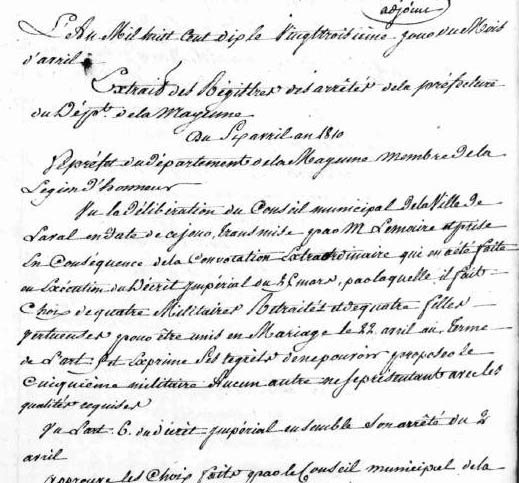 adjoint
L'An Mil huit cent dix le Vingttroisième jour du Mois
d'avril
Extrait des Régistres des arrêtés de la préfecture
du Dépt. de la Mayenne
Du Six avril an 1810
Le préfet du département de la Mayenne membre de la
Legion d'honneur
Vu la délibération du Conseil municipal De la Ville de
Laval en date de ce jour, transmise par M. Lemoire et prise
En Conséquence de la Convocation Extraordinaire qui en a été faite
en Exécution du Décrit impérial du 25 mars, par laquelle il fait
Choix de quatre Militaires Retraités et de quatre filles
vertueuses pour être unis en Mariage le 22 avril au terme
de L'art. et Exprime Ses regrets de ne pouvoir proposer le
Cinquième militaire Aucun autre ne se présentant avec les
qualités requises
Vu L'art. 6. du décrit impérial ensemble Son arrêté du 2
avril
Approuve les Choix faits par le Conseil municipal de la